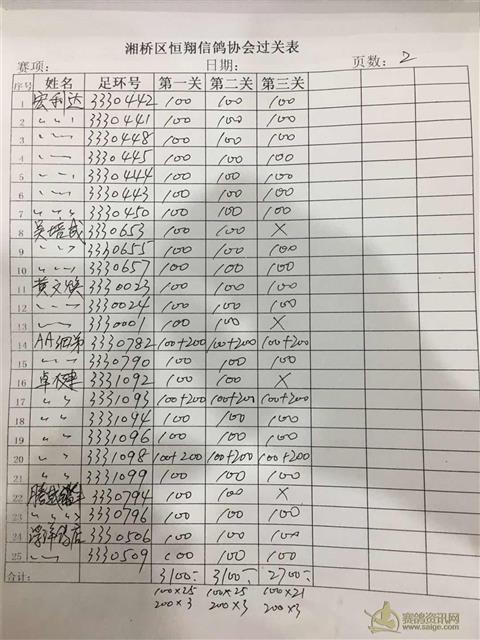 湘桥区恒翔信鸽协会过关表
赛项: 日期: 页数: 2
序号 姓名 足环号 第一关 第二关 第三关
1 宏利达 3330442 100 100 100
2 〃 3330441 100 100 100
3 〃 3330448 100 100 100
4 〃 3330445 100 100 100
5 〃 3330444 100 100 100
6 〃 3330443 100 100 100
7 〃 3330450 100 100 100
8 吴培武 3330653 100 100 ×
9 〃 3330655 100 100 100
10 〃 3330657 100 100 100
11 黄文焕 3330023 100 100 100
12 〃 3330024 100 100 100
13 〃 3330001 100 100 ×
14 AA细弟 3330782 100+200 100+200 100+200
15 〃 3330790 100 100 100
16 卓 3331092 100 100 ×
17 〃 3331093 100+200 100+200 100+200
18 〃 3331094 100 100 100
19 〃 3331096 100 100 100
20 〃 3331098 100+200 100+200 100+200
21 〃 3331099 100 100 100
22 3330794 100 100 ×
23 〃 3330796 100 100 100
24 3330506 100 100 100
25 〃 3330509 100 100 100
合计: 3100 3100 2700
100×25 100×25 100×21
200×3 200×3 200×3
赛鸽资讯网
www.saige.com